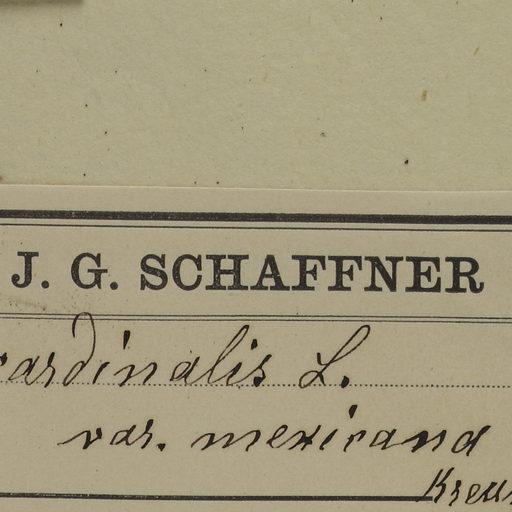 J. G. SCHAFFNER
cardinalis L.
var. mexicana